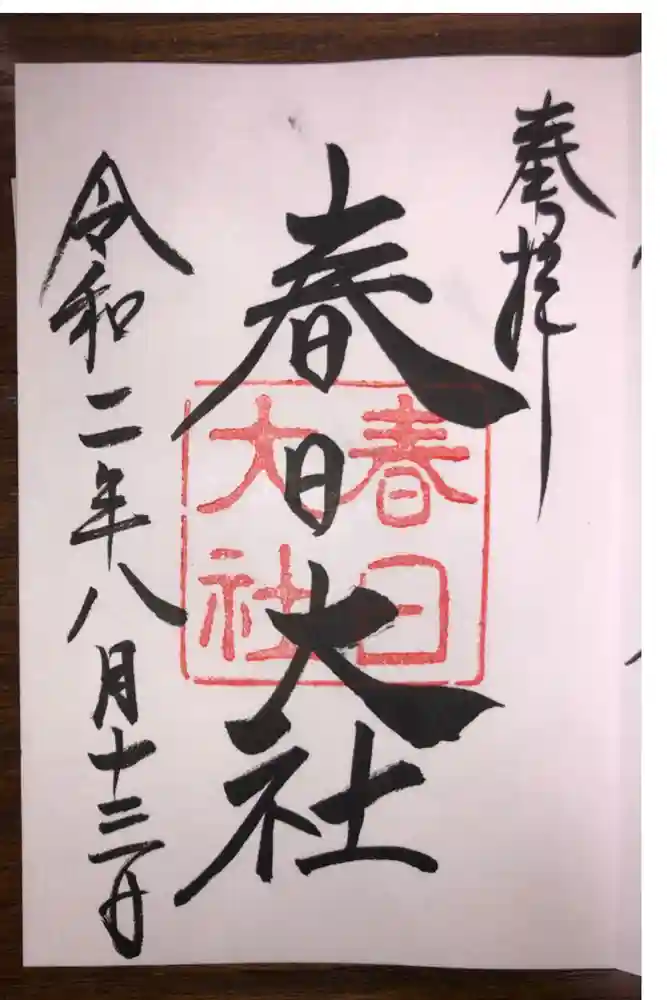 奉拝
春日大社
春日
大社
令和二年八月十三日